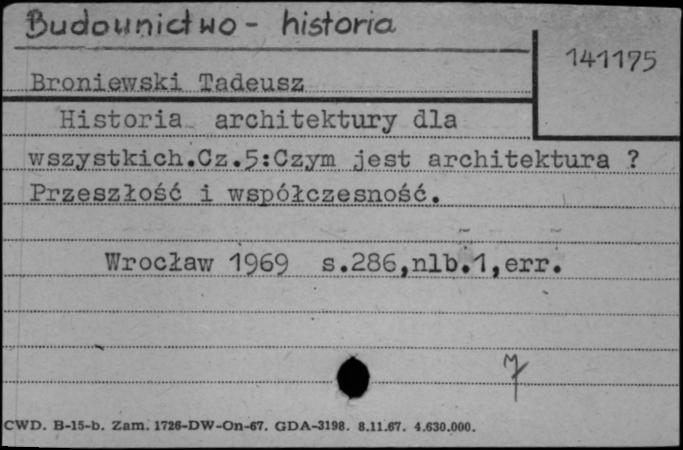 Budownictwo - historia
141175
Broniewski Tadeusz
Historia architektury dla
wszystkich.Cz.5:Czym jest architektura ?
Przeszłość i współczesność.
Wrocław 1969 s.286,nlb.1,err.
CWD. B-15-b. Zam. 1726-DW-On-67. GDA-3198. 8.11.67. 4.630.000.